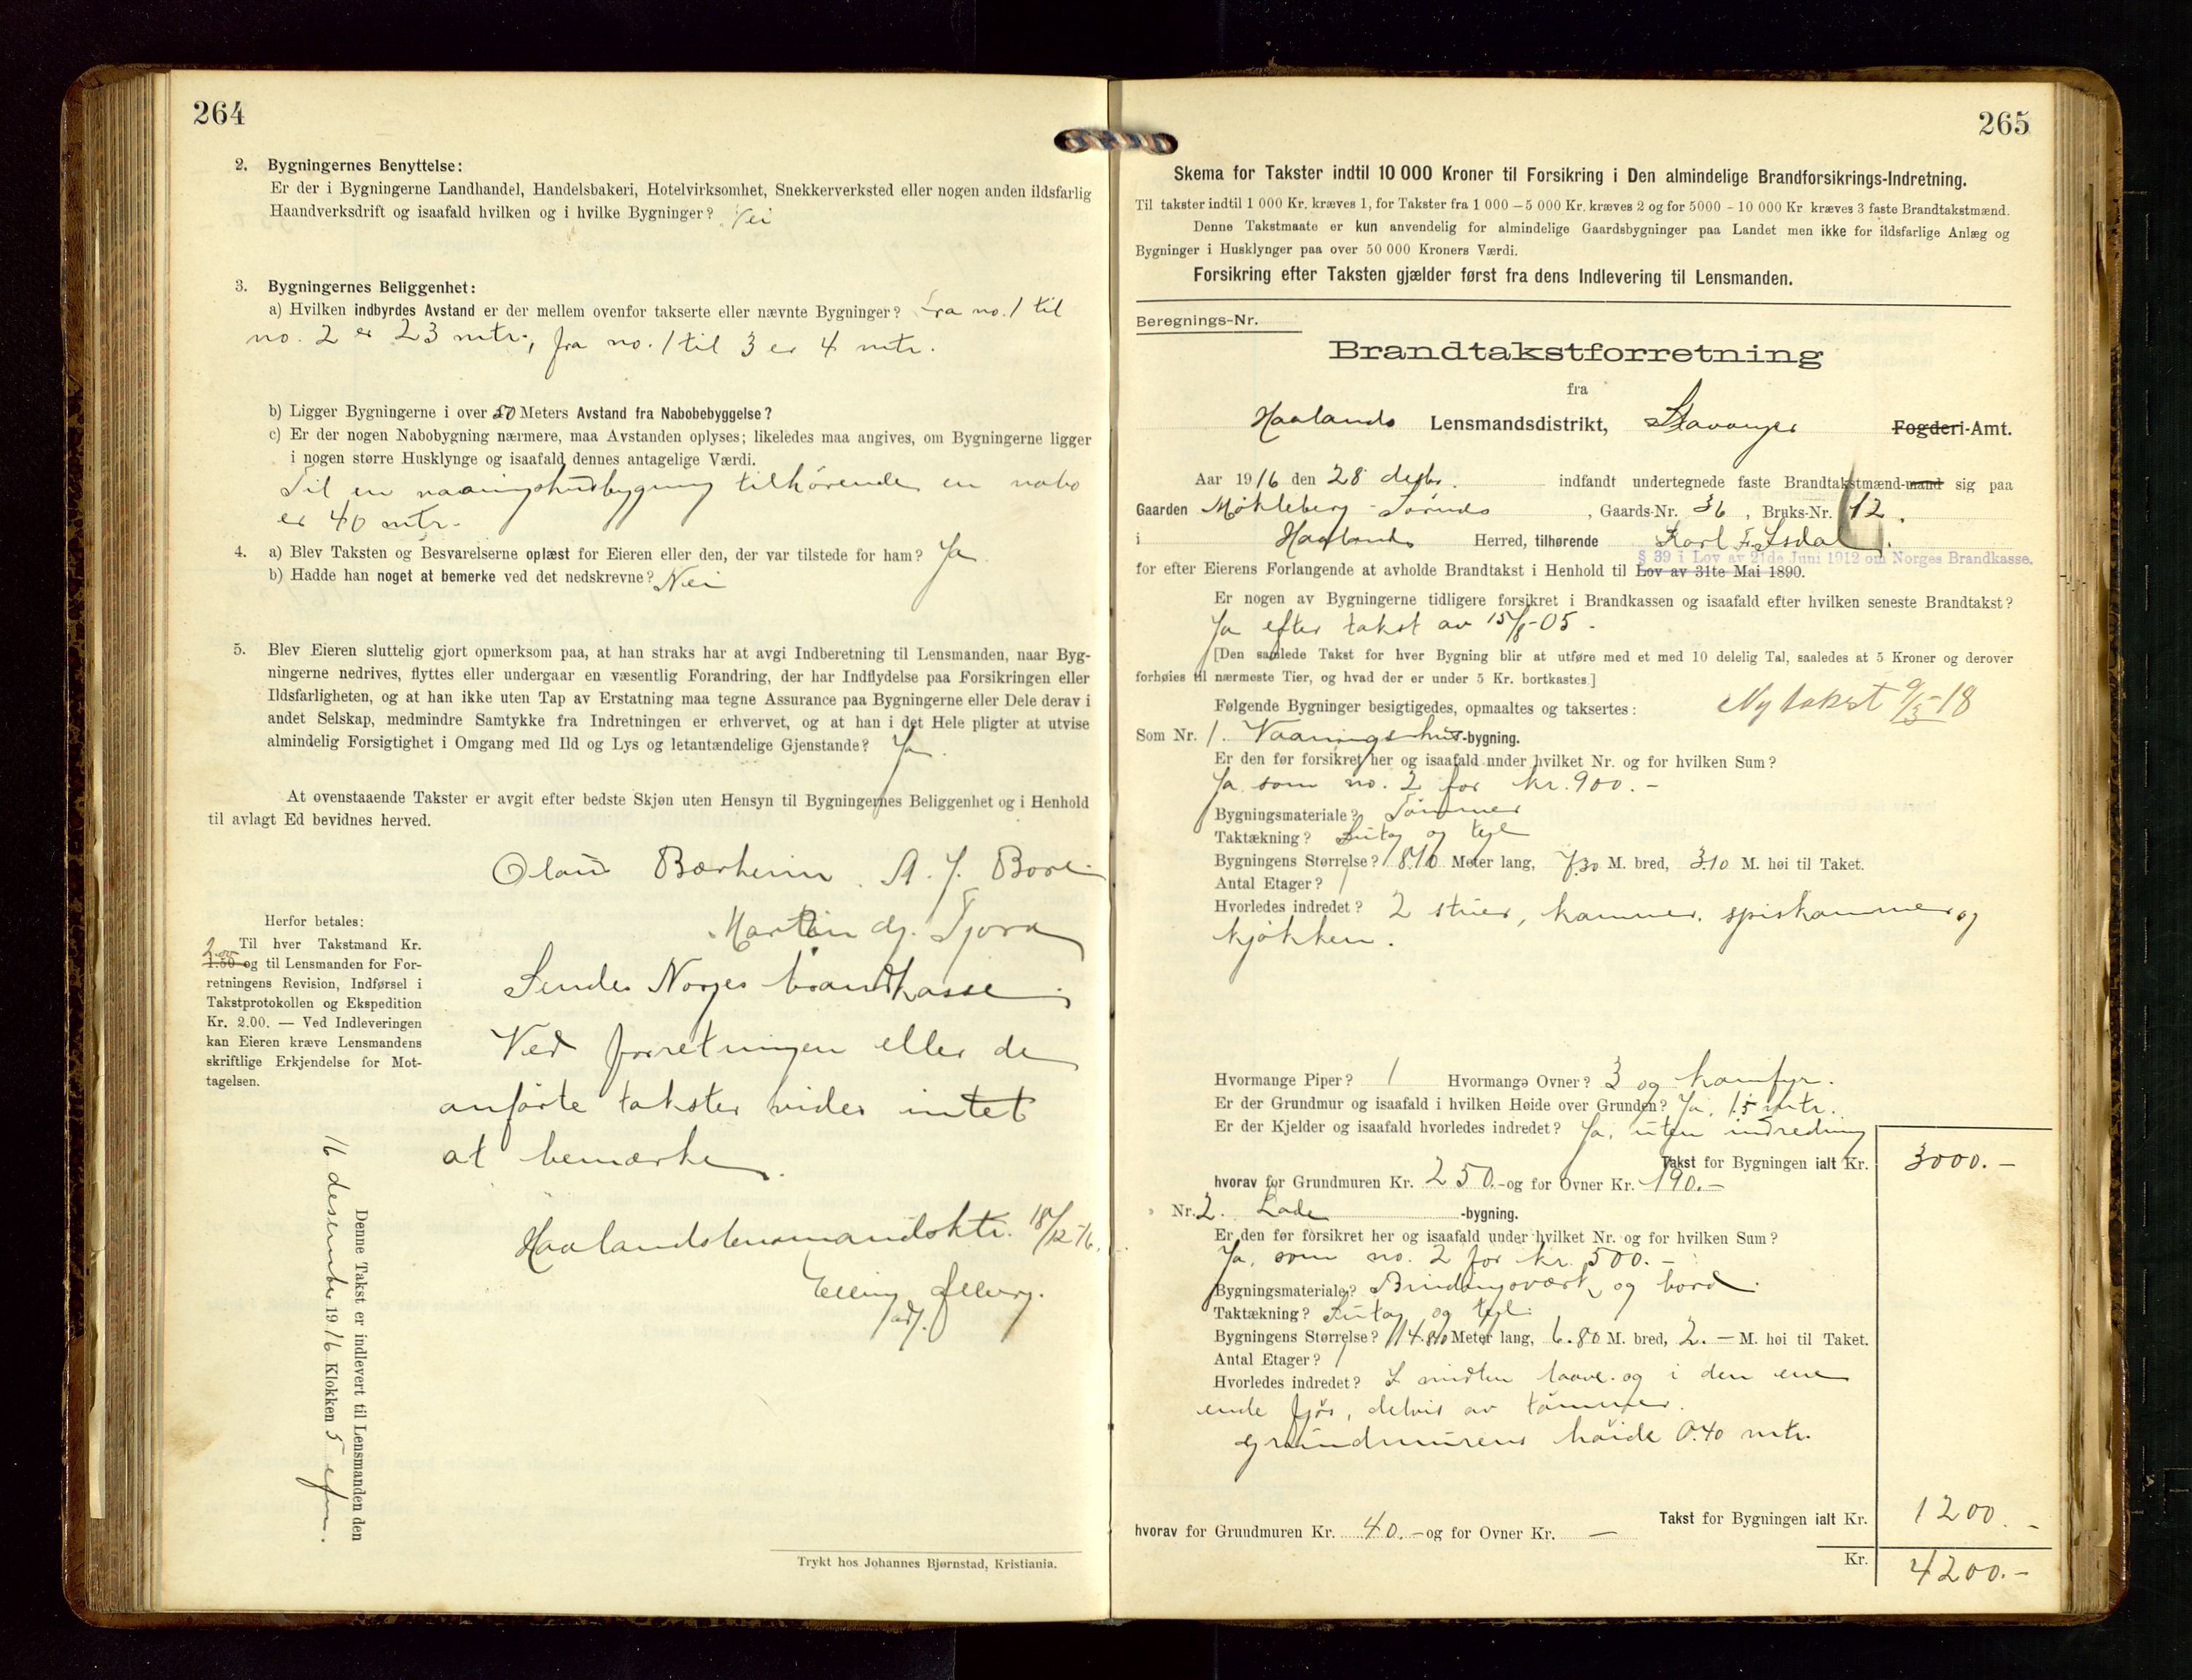 264
2. Bygningernes Benyttelse:
Er der i Bygningerne Landhandel, Handelsbakeri, Hotelvirksomhet, Snekkerverksted eller nogen anden ildsfarlig
Haandverksdrift og isaafald hvilken og i hvilke Bygninger? Nei
3. Bygningernes Beliggenhet:
a) Hvilken indbyrdes Avstand er der mellem ovenfor takserte eller nævnte Bygninger? Fra no. 1 til
no. 2 er 23 mtr., fra no. 1 til 3 er 4 mtr.
b) Ligger Bygningerne i over 50 Meters Avstand fra Nabobebyggelse?
c) Er der nogen Nabobygning nærmere, maa Avstanden oplyses; likeledes maa angives, om Bygningerne ligger
i nogen større Husklynge og isaafald dennes antagelige Værdi.
Til en vaaningshusbygning tilhörende en nabo
er 40 mtr.
4. a) Blev Taksten og Besvarelserne oplæst for Eieren eller den, der var tilstede for ham? Ja
b) Hadde han noget at bemerke ved det nedskrevne? Nei
5. Blev Eieren sluttelig gjort opmerksom paa, at han straks har at avgi Indberetning til Lensmanden, naar Byg-
ningerne nedrives, flyttes eller undergaar en væsentlig Forandring, der har Indflydelse paa Forsikringen eller
Ildsfarligheten, og at han ikke uten Tap av Erstatning maa tegne Assurance paa Bygningerne eller Dele derav i
andet Selskap, medmindre Samtykke fra Indretningen er erhvervet, og at han i det Hele pligter at utvise
almindelig Forsigtighet i Omgang med Ild og Lys og letantændelige Gjenstande? Ja
At ovenstaaende Takster er avgit efter bedste Skjøn uten Hensyn til Bygningernes Beliggenhet og i Henhold
til avlagt Ed bevidnes herved.
Olaus Bærheim. A. J. Bore
Martin Gj. Tjora
Herfor betales:
Til hver Takstmand Kr.
2.00
1.50 og til Lensmanden for For-
retningens Revision, Indførsel i
Takstprotokollen og Ekspedition
Kr. 2.00. — Ved Indleveringen
kan Eieren kræve Lensmandens
skriftlige Erkjendelse for Mot-
tagelsen.
Sendes Norges brandkasse.
Ved forretningen eller de
anförte takster vides intet
at bemerke.
Haalandslensmandsktr. 18/12-16.
Elling
Denne Takst er indlevert til Lensmanden den
16 desember 1916 Klokken 5 efm.
Trykt hos Johannes Bjørnstad, Kristiania.
265
Skema for Takster indtil 10 000 Kroner til Forsikring i Den almindelige Brandforsikrings-Indretning.
Til takster indtil 1 000 Kr. kræves 1, for Takster fra 1 000 – 5 000 Kr. kræves 2 og for 5000 – 10 000 Kr kræves 3 faste Brandtakstmænd.
Denne Takstmaate er kun anvendelig for almindelige Gaardsbygninger paa Landet men ikke for ildsfarlige Anlæg og
Bygninger i Husklynger paa over 50 000 Kroners Værdi.
Forsikring efter Taksten gjælder først fra dens Indlevering til Lensmanden.
Beregnings-Nr.
Brandtakstforretning
fra
Haalands Lensmandsdistrikt, Stavanger Fogderi-Amt.
Aar 1916 den 28 indfandt undertegnede faste Brandtakstmænd-mand sig paa
Gaarden Møkleberg , Gaards-Nr. 36, Bruks-Nr. 12.
i Haalands Herred, tilhørende Karl F. Isdal.
§ 39 i Lov av 21de Juni 1912 om Norges Brandkasse.
for efter Eierens Forlangende at avholde Brandtakst i Henhold til Lov av 31te Mai 1890.
Er nogen av Bygningerne tidligere forsikret i Brandkassen og isaafald efter hvilken seneste Brandtakst?
Ja efter takst av 15/8-05.
[Den samlede Takst for hver Bygning blir at utføre med et med 10 delelig Tal, saaledes at 5 Kroner og derover
forhøies til nærmeste Tier, og hvad der er under 5 Kr. bortkastes.]
Følgende Bygninger besigtigedes, opmaaltes og taksertes: Ny takst 9/3-18
Som Nr. 1. Vaaningshus-bygning.
Er den før forsikret her og isaafald under hvilket Nr. og for hvilken Sum?
Ja, som no. 2 for kr. 900.-
Bygningsmateriale? Tömmer
Taktækning? Sutag og tegl
Bygningens Størrelse? 8.10 Meter lang, 7.30 M. bred, 3.10 M. høi til Taket.
Antal Etager? 1
Hvorledes indredet? 2 stuer, kammer, spiskammer og
kjøkken.
Hvormange Piper? 1 Hvormange Ovner? 3 og komfyr.
Er der Grundmur og isaafald i hvilken Høide over Grunden? Ja, 1.5 mtr.
Er der Kjelder og isaafald hvorledes indredet? Ja, uten indredning
Takst for Bygningen ialt Kr. 3000.-
hvorav for Grundmuren Kr. 250.- og for Ovner Kr. 190.-
Nr. 2. Lade -bygning.
Er den før forsikret her og isaafald under hvilket Nr. og for hvilken Sum?
Ja, som no. 2 for kr. 500.-
Bygningsmateriale? Bindingsværk og bord.
Taktækning? Sutag og tegl.
Bygningens Størrelse? 14.80 Meter lang, 6.80 M. bred, 2.- M. høi til Taket.
Antal Etager? 1
Hvorledes indredet? I midten laave og i den ene
ende fjøs, delvis av tömmer.
Grundmurens höide 0.40 mtr.
Takst for Bygningen ialt Kr. 1200.-
hvorav for Grundmuren Kr. 40.- og for Ovner Kr. —
Kr. 4200.-